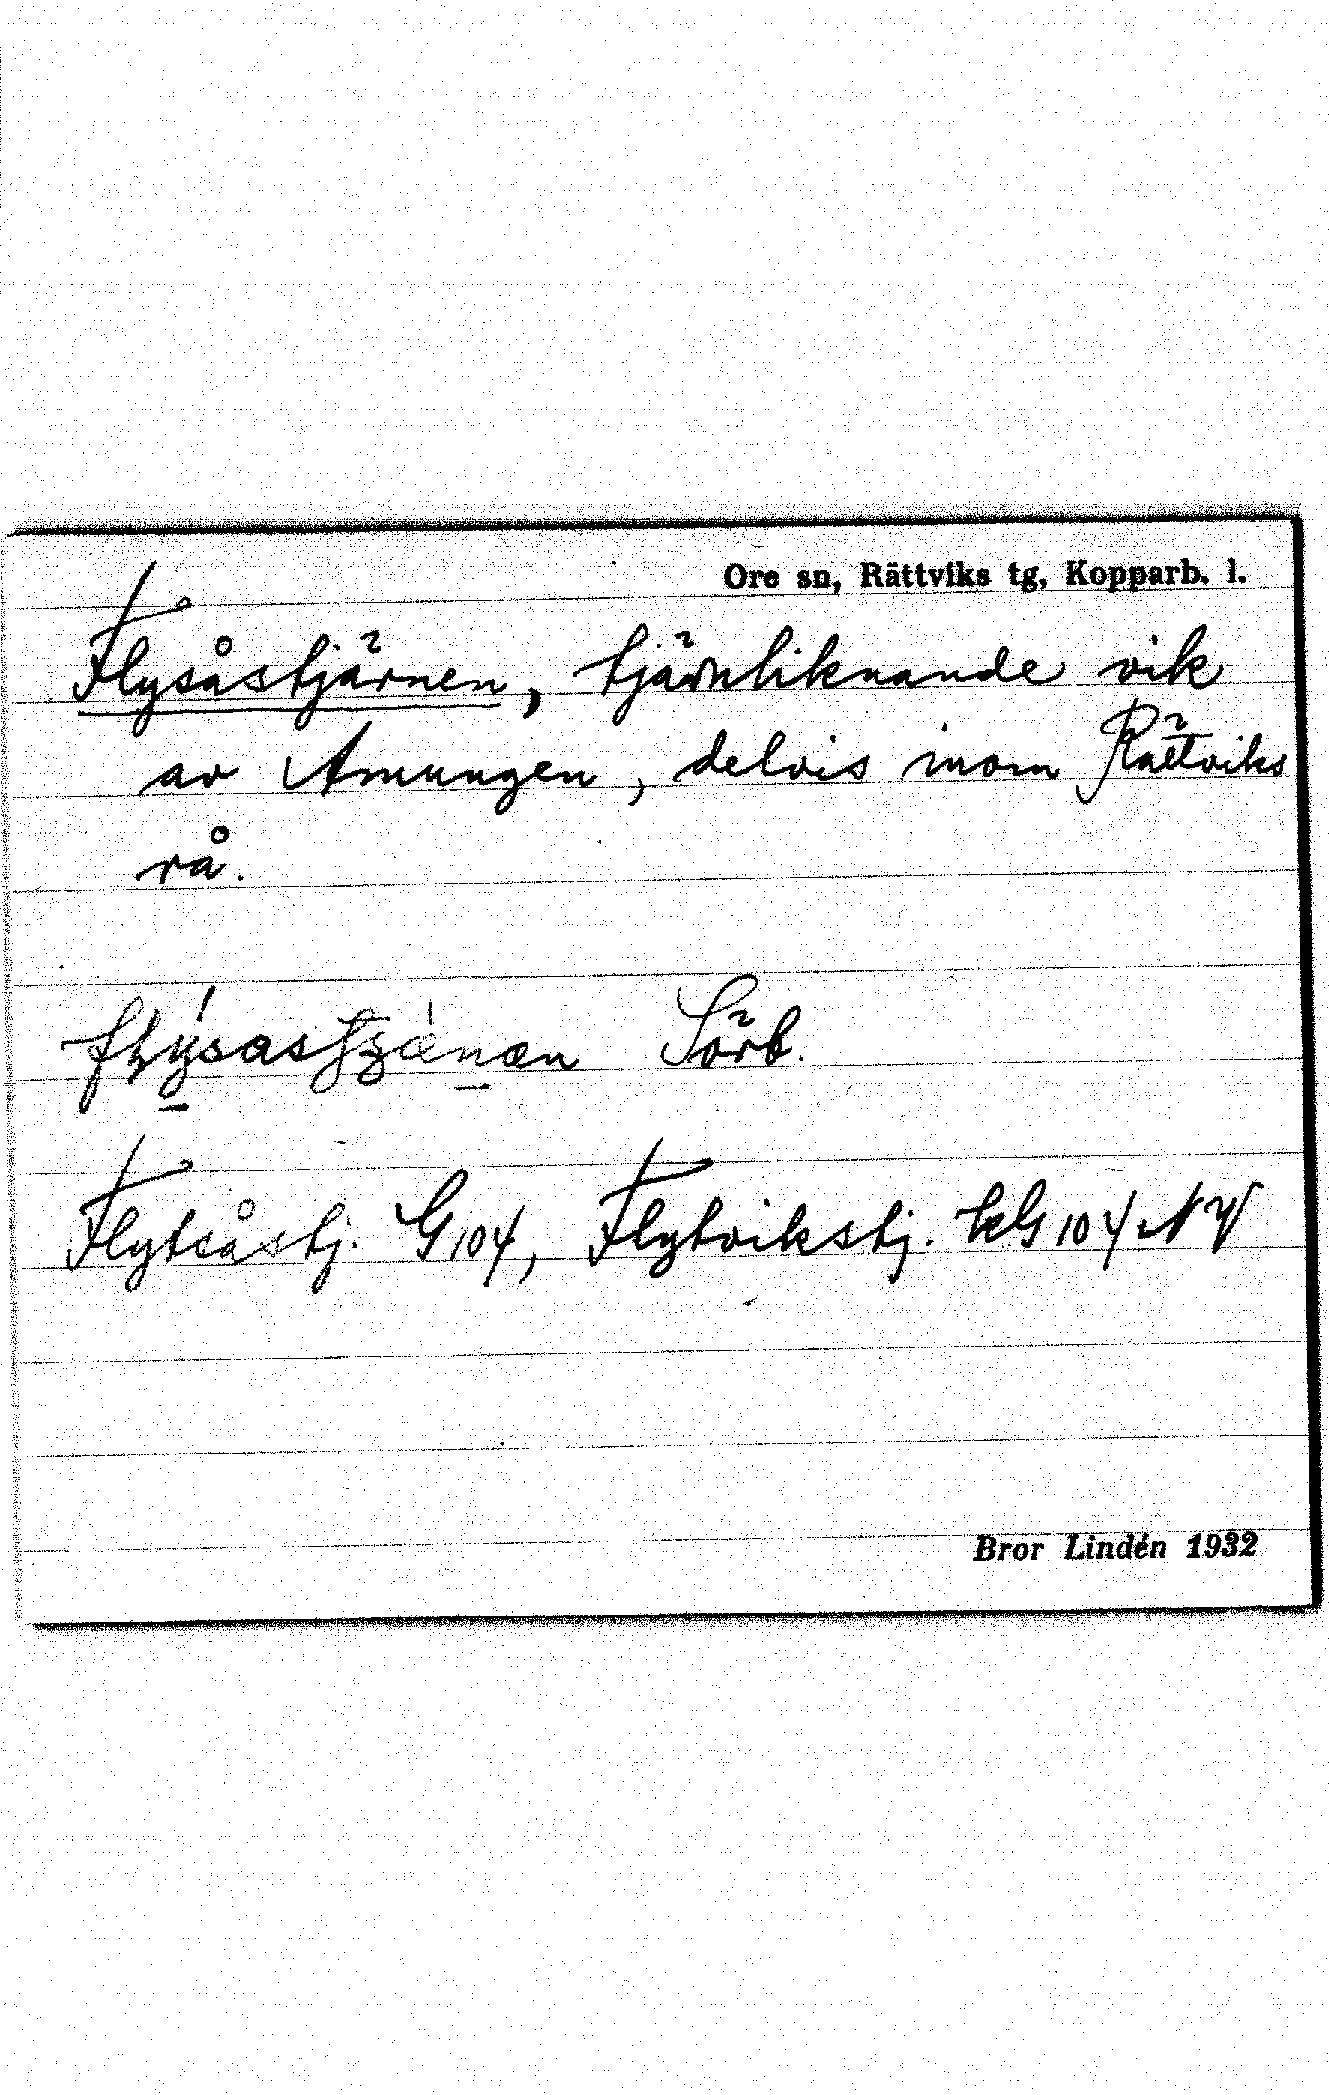 Ore sn, Rättviks tg, Kopparb. l.
Flysåstjärnen, tjärnliknande vik
av Amungen, delvis inom Rättviks
rå.
Sörb.
Flytsåstj. G 104, Flytvikstj. kG 104 NV
Bror Lindén 1932